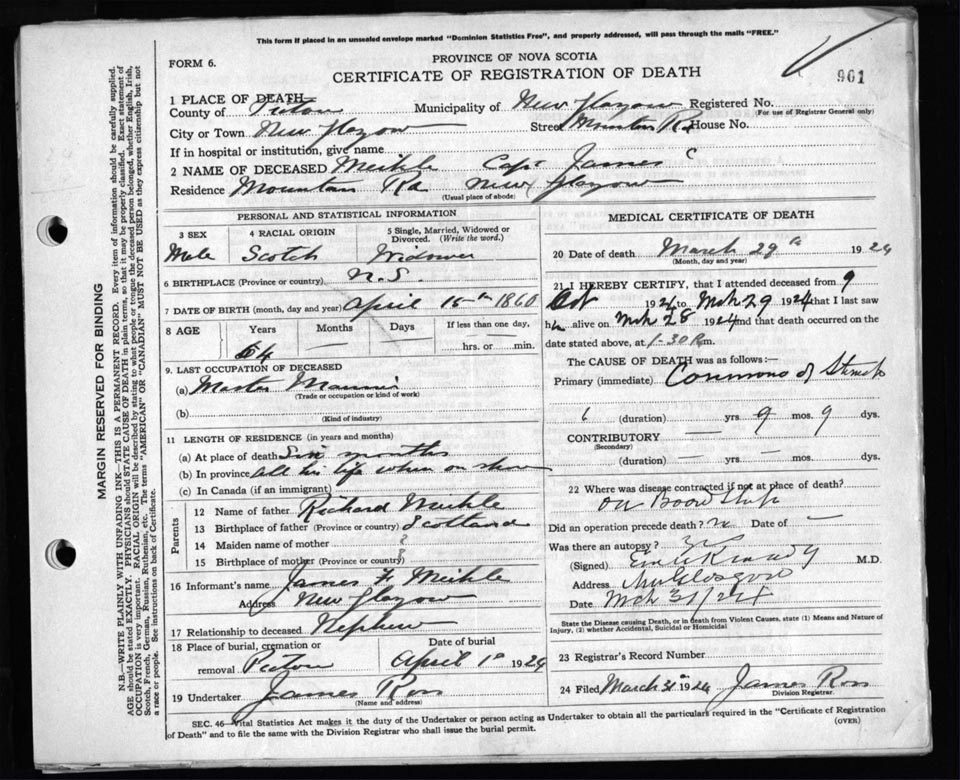 This form if placed in an unsealed envelope marked "Dominion Statistics Free", and properly addressed, will pass through the mails "FREE."
FORM 6.
PROVINCE OF NOVA SCOTIA
CERTIFICATE OF REGISTRATION OF DEATH
901
1 PLACE OF DEATH
County of Pictou Municipality of New Glasgow Registered No.
(For use of Registrar General only)
City or Town New Glasgow Street Mountain Rd House No.
If in hospital or institution, give name
2 NAME OF DECEASED Meikle Capt James C
Residence Mountain Rd New Glasgow
(Usual place of abode)
PERSONAL AND STATISTICAL INFORMATION
3 SEX
4 RACIAL ORIGIN
5 Single, Married, Widowed or Divorced. (Write the word.)
Male Scotch Widower
6 BIRTHPLACE (Province or country) N.S.
7 DATE OF BIRTH (month, day and year) April 15th 1860
8 AGE Years Months Days If less than one day,
64 — — hrs. or min.
9. LAST OCCUPATION OF DECEASED
(a) Master Mariner
(Trade or occupation or kind of work)
(b)
(Kind of industry)
11 LENGTH OF RESIDENCE (in years and months)
(a) At place of death Six months
(b) In province all his life when on shore
(c) In Canada (if an immigrant)
Parents
12 Name of father Richard Meikle
13 Birthplace of father (Province or country) Scotland
14 Maiden name of mother ?
15 Birthplace of mother (Province or country) ?
16 Informant's name James F Meikle
Address New Glasgow
17 Relationship to deceased Nephew
18 Place of burial, cremation or removal Pictou
Date of burial April 1st 1924
19 Undertaker James Ross
(Name and address)
MEDICAL CERTIFICATE OF DEATH
20 Date of death March 29th 1924
(Month, day and year)
21 I HEREBY CERTIFY, that I attended deceased from 9
Oct 192 to Mch 29 1924 that I last saw
h alive on Mch 28 1924 and that death occurred on the
date stated above, at 1-30 P.m.
The CAUSE OF DEATH was as follows:—
Primary (immediate) Carcinoma of Stomach
(duration) yrs 9 mos. 9 dys.
CONTRIBUTORY
(Secondary)
(duration) — yrs — mos. dys.
22 Where was disease contracted if not at place of death?
On Board Ship
Did an operation precede death? no Date of —
Was there an autopsy? no
(Signed) Kennedy M.D.
Address New Glasgow
Date Mch 31/24
State the Disease causing Death, or in death from Violent Causes, state (1) Means and Nature of Injury, (2) whether Accidental, Suicidal or Homicidal
23 Registrar's Record Number
24 Filed March 31st 1924 James Ross
Division Registrar.
SEC. 46—Vital Statistics Act makes it the duty of the Undertaker or person acting as Undertaker to obtain all the particulars required in the "Certificate of Registration of Death" and to file the same with the Division Registrar who shall issue the burial permit.
(OVER)
MARGIN RESERVED FOR BINDING
N.B.—WRITE PLAINLY WITH UNFADING INK—THIS IS A PERMANENT RECORD. Every item of information should be carefully supplied.
AGE should be stated EXACTLY. PHYSICIANS should STATE CAUSE OF DEATH in plain terms, so that it may be properly classified. Exact statement of
OCCUPATION is very important. RACIAL ORIGIN will be described by stating to what people or tongue the deceased person belonged, whether English, Irish,
Scotch, French, German, Russian, Ruthenian, etc. The terms "AMERICAN" or "CANADIAN" MUST NOT BE USED as they express citizenship but not
a race or people. See instructions on back of Certificate.